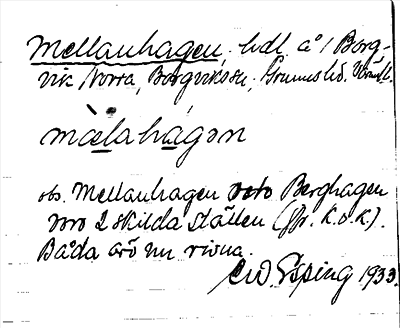 Mellanhagen, hdl. a° 1 Borg-
vik Norra, Borgviks sn, Grums hd. Värml.
mælahágən
obs. Mellanhagen och Berghagen
voro 2 skilda ställen (jfr. K.o.K.).
Båda äro nu rivna.
Esping 1933.